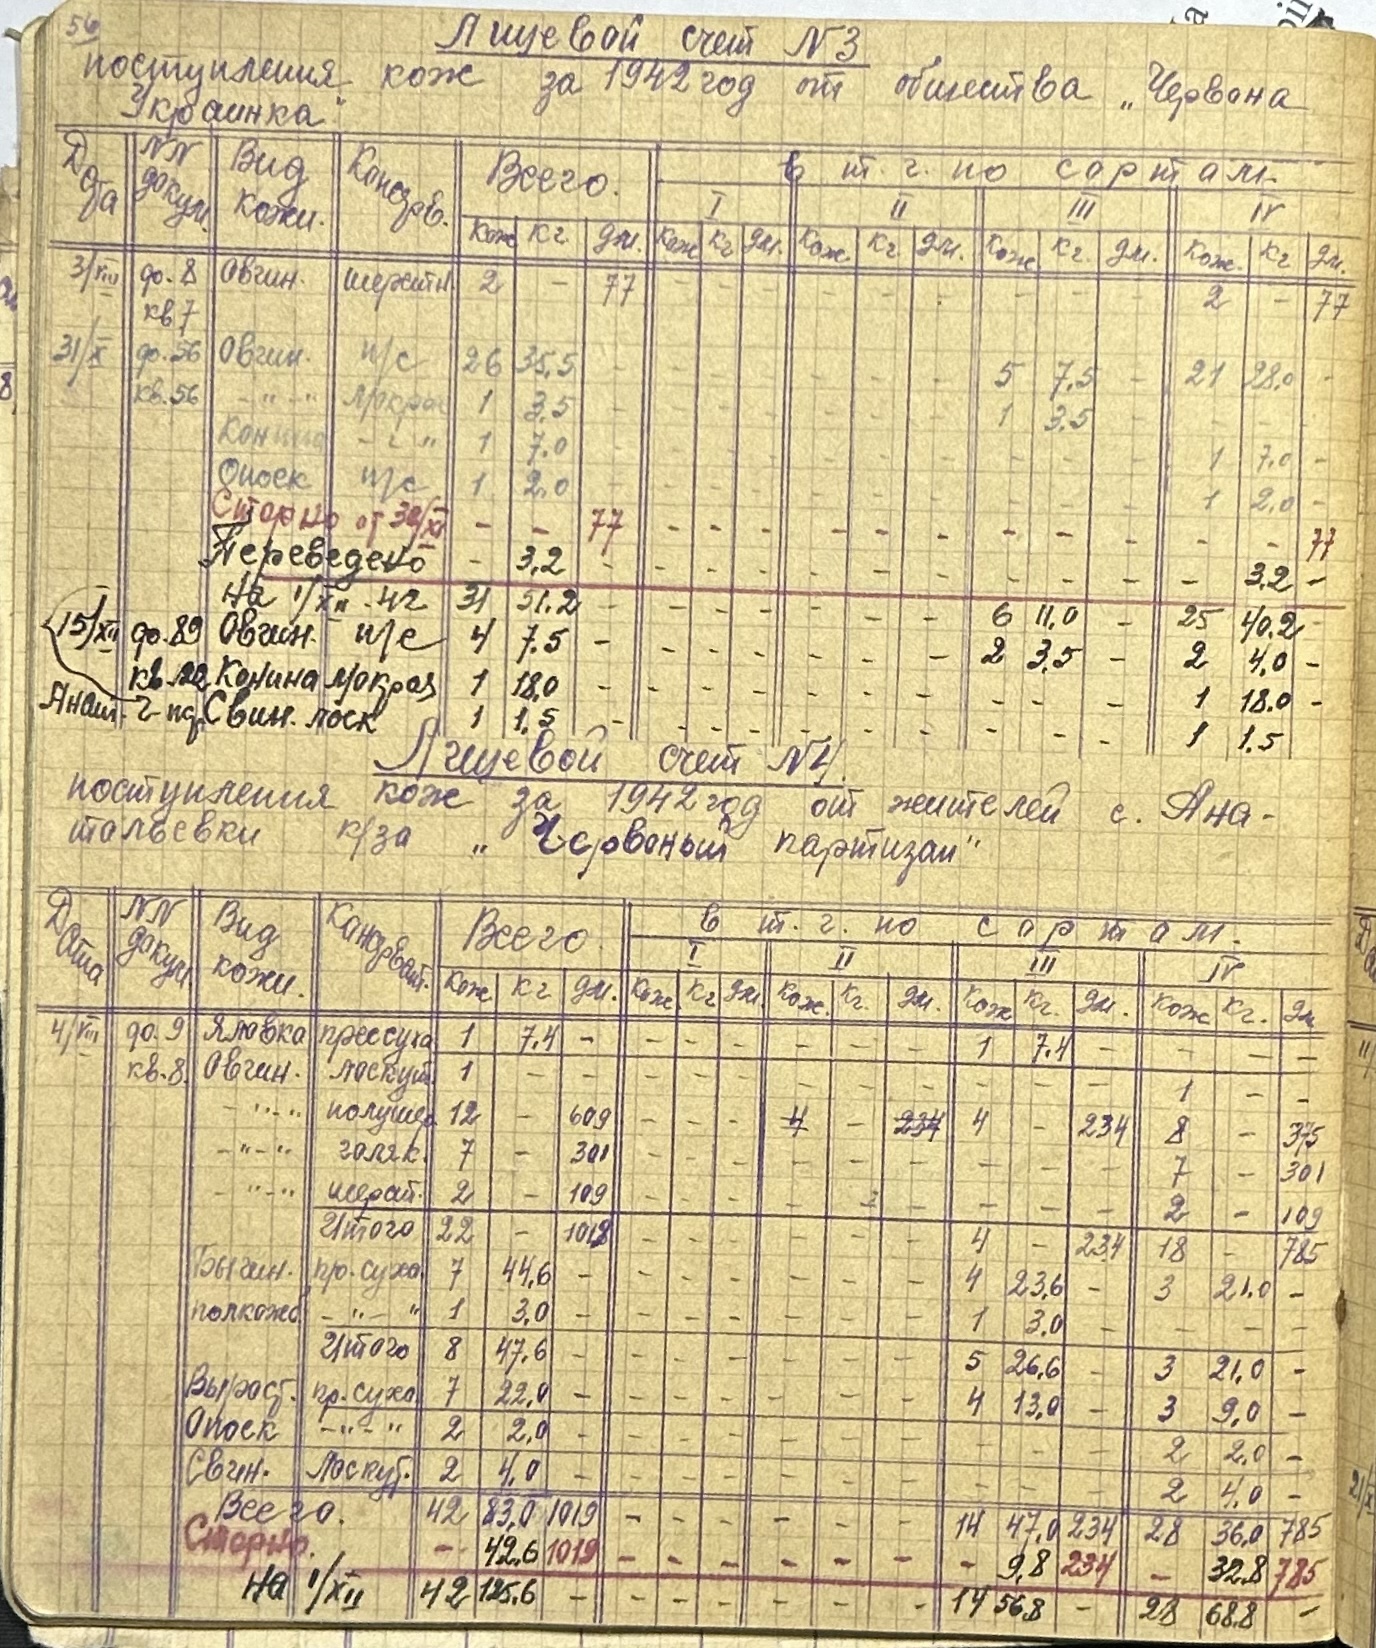 56
Лицевой счет N 3
поступления кож за 1942 год от общества „Червона
Украинка"
Дата NN докум. Вид кожи. Консерв. Всего. в т. г. по сортам.
I II III IV
кож кг дм. кож кг дм. кож. кг. дм. кож. кг. дм. кож. кг дм.
3/VIII до. 8 Овчин. шерстн. 2 - 77 - - - - - - - - - 2 - 77
кв 7
31/X до. 56 Овчин. п/с 26 35,5 - - - - - - - 5 7,5 - 21 28,0 -
кв. 56 - " - " мокрая 1 3,5 - - - - - - - 1 3,5 - - - -
Конина - " - " 1 7,0 - - - - - - - - - - 1 7,0 -
Опоек п/с 1 2,0 - - - - - - - - - - 1 2,0 -
Сторно от 30/XI - - 77 - - - - - - - - - - - 77
Переведено - 3,2 - - - - - - - - - - - 3,2 -
на 1/XII - 42 31 51,2 - - - - - - - 6 11,0 - 25 40,2 -
15/XII до. 89 Овчин. п/с 4 7,5 - - - - - - - 2 3,5 - 2 4,0 -
кв. 22 Конина мокрая 1 18,0 - - - - - - - - - - 1 18,0 -
Свин. лоск 1 1,5 - - - - - - - - - - 1 1,5
Лицевой счет N 4.
поступления кож за 1942 год от жителей с. Ана-
тольевки к/за „Червоный партизан"
Дата NN докум Вид кожи. Консерват. Всего. в т. г. по сортам.
I II III IV
кож кг дм. кож. кг дм. кож. кг. дм. кож кг. дм. кож кг. дм
4/VIII до. 9 Яловка прессуха 1 7,4 - - - - - - - 1 7,4 - - - -
кв. 8. Овчин. лоскут. 1 - - - - - - - - - - - 1 - -
- " - " полушер 12 - 609 - - - 4 - 234 4 - 234 8 - 375
- " - " голяк. 7 - 301 - - - - - - - - - 7 - 301
- " - " шерст. 2 - 109 - - - - - - - - - 2 - 109
Итого 22 - 1019 - - - - - - 4 - 234 18 - 785
Бычин. пр. суха 7 44,6 - - - - - - - 4 23,6 - 3 21,0 -
полкожа - " - " 1 3,0 - - - - - - - 1 3,0 - - - -
Итого 8 47,6 - - - - - - - 5 26,6 - 3 21,0 -
Выраст. пр. суха 7 22,0 - - - - - - - 4 13,0 - 3 9,0 -
Опоек - " - " 2 2,0 - - - - - - - - - - 2 2,0 -
Свин. Лоскут. 2 4,0 - - - - - - - - - - 2 4,0 -
Всего. 42 83,0 1019 - - - - - - 14 47,0 234 28 36,0 785
Сторно. - 42,6 1019 - - - - - - - 9,8 234 - 32,8 785
на 1/XII 42 125,6 - - - - - - - 14 56,8 - 28 68,8 -